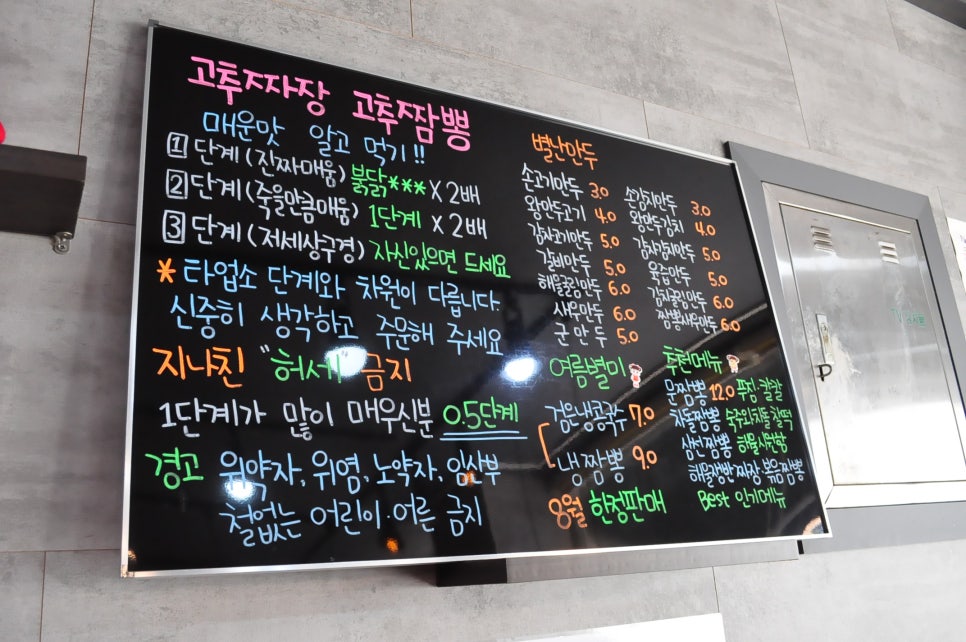 고추짜장 고추짬뽕
매운맛 알고 먹기!!
1 단계 (진짜매움) 붉닭*** X 2배
2 단계 (죽을만큼매움) 1단계 X 2배
3 단계 (저세상구경) 자신있으면 드세요
* 타업소 단계와 차원이 다릅니다.
신중히 생각하고 주문해 주세요
지나친 "허세" 금지
1단계가 많이 매우신분 0.5단계
경고 위약자, 위염, 노약자, 임산부
철없는 어린이·어른 금지
별난만두
손고기만두 3.0
왕만두고기 4.0
감자고기만두 5.0
갈비만두 5.0
해물굴림만두 6.0
새우만두 6.0
군만두 5.0
손김치만두 3.0
왕만두김치 4.0
감자김치만두 5.0
육즙만두 5.0
김치굴림만두 6.0
짬뽕새우만두 6.0
여름별미
검은냉콩국수 7.0
냉짬뽕 9.0
8월 한정판매
추천메뉴
문짬뽕 12.0 푸짐 칼칼
차돌짬뽕 숙주와차돌 찰떡
삼선짬뽕 해물시원함
해물쟁반짜장 볶음짬뽕
Best 인기메뉴